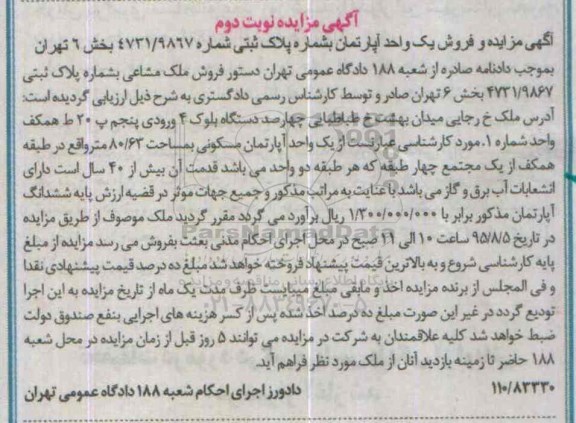 آگهی مزایده نوبت دوم
آگهی مزایده و فروش یک واحد آپارتمان بشماره پلاک ثبتی شماره ۴۷۳۱/۹۸۶۷ بخش ۶ تهران
بموجب دادنامه صادره از شعبه ۱۸۸ دادگاه عمومی تهران دستور فروش ملک مشاعی بشماره پلاک ثبتی
۴۷۳۱/۹۸۶۷ بخش ۶ تهران صادر و توسط کارشناس رسمی دادگستری به شرح ذیل ارزیابی گردیده است:
آدرس ملک خ رجایی میدان بهشت خ طباطبایی چهارصد دستگاه بلوک ۴ ورودی پنجم پ ۲۰ ط همکف
واحد شماره ۱. مورد کارشناسی عبارتست از یک واحد آپارتمان مسکونی بمساحت ۸۰/۶۳ مترواقع در طبقه
همکف از یک مجتمع چهار طبقه که هر طبقه دو واحد می باشد قدمت آن بیش از ۴۰ سال است دارای
انشعابات آب برق و گاز می باشد با عنایت به مراتب مذکور و جمیع جهات موثر در قضیه ارزش پایه ششدانگ
آپارتمان مذکور برابر با ۱/۳۰۰/۰۰۰/۰۰۰ ریال برآورد می گردد مقرر گردید ملک موصوف از طریق مزایده
در تاریخ ۹۵/۸/۵ ساعت ۱۰ الی ۱۱ صبح در محل اجرای احکام مدنی بعثت بفروش می رسد مزایده از مبلغ
پایه کارشناسی شروع و به بالاترین قیمت پیشنهاد فروخته خواهد شد مبلغ ده درصد قیمت پیشنهادی نقدا
و فی المجلس از برنده مزایده اخذ و مابقی مبلغ میبایست ظرف مدت یک ماه از تاریخ مزایده به این اجرا
تودیع گردد در غیر این صورت مبلغ ده درصد اخذ شده پس از کسر هزینه های اجرایی بنفع صندوق دولت
ضبط خواهد شد کلیه علاقمندان به شرکت در مزایده می توانند ۵ روز قبل از زمان مزایده در محل شعبه
۱۸۸ حاضر تا زمینه بازدید آنان از ملک مورد نظر فراهم آید.
۱۱۰/۸۳۳۳۰ دادورز اجرای احکام شعبه ۱۸۸ دادگاه عمومی تهران
ParsNamadData